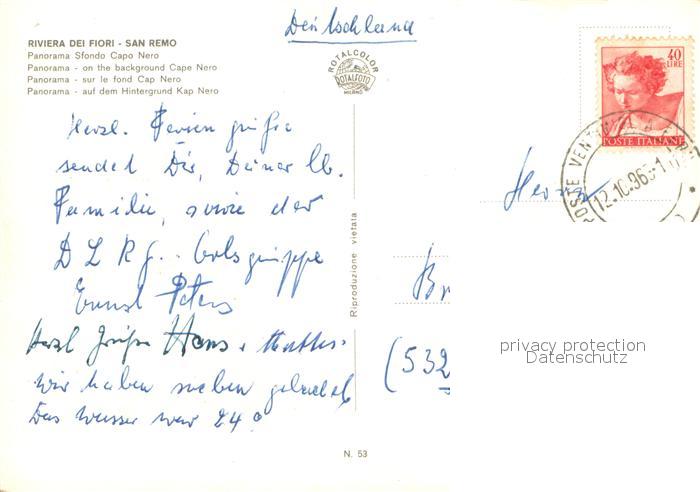 Deutschland
RIVIERA DEI FIORI - SAN REMO
Panorama Sfondo Capo Nero
Panorama - on the background Cape Nero
Panorama - sur le fond Cap Nero
Panorama - auf dem Hintergrund Kap Nero
ROTALCOLOR
ROTALFOTO
MILANO
40
LIRE
POSTE ITALIANE
POSTE VENTIMIGLIA
12.10.963
Herzl. Feriengrüße
sendet Dir, Deiner lb.
Familie, sowie der
D L R G. Ortsgruppe
Ernst Peters
Herzl Grüße Hans
wir haben soeben gebadet
Das Wasser war 24°
Herrn
Br
(532
Riproduzione vietata
privacy protection
Datenschutz
N. 53